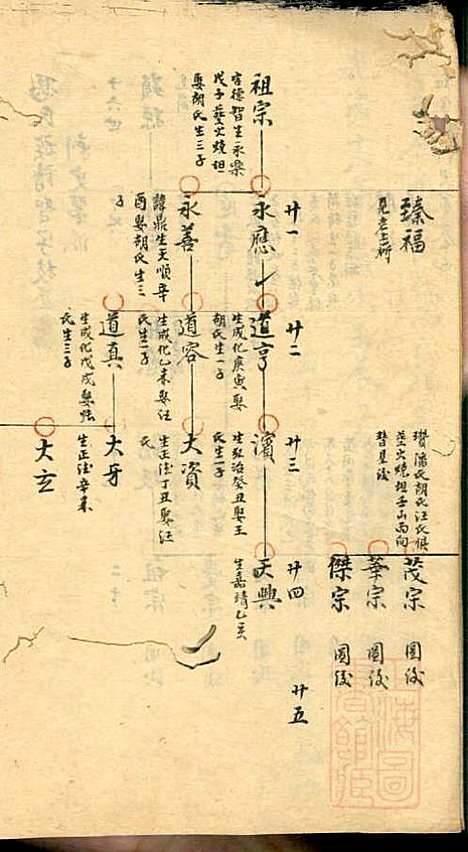 臻福
見老王祈
瓚潘氏胡氏汪氏俱
葬火燒坦壬山丙向
替見後
茂宗 圖後
華宗 圖後
傑宗 圖後
廿一
廿二
廿三
廿四
廿五
祖宗
字德智生永樂
戊子葬火燒坦
娶胡氏生三子
永應
道亨
生成化庚寅娶
胡氏生一子
濱
生弘治癸丑娶王
氏生一子
天興
生嘉靖乙亥
永善
諱鼎生天順辛
酉娶胡氏生三
子
道容
生成化乙未娶汪
氏生一子
大資
生正德丁丑娶汪
氏
道真
生成化戊戌娶
氏生二子
大牙
生正德辛未
大玄